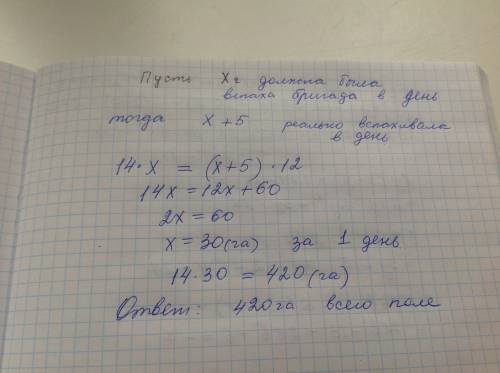 Пусть Хг должна была
вспаха бригада в день
тогда х+5 реально вспахивала
в день
14·х = (х+5)·12
14х = 12х+60
2х = 60
х = 30(га) за 1 день
14·30 = 420(га)
Ответ: 420га всего поле